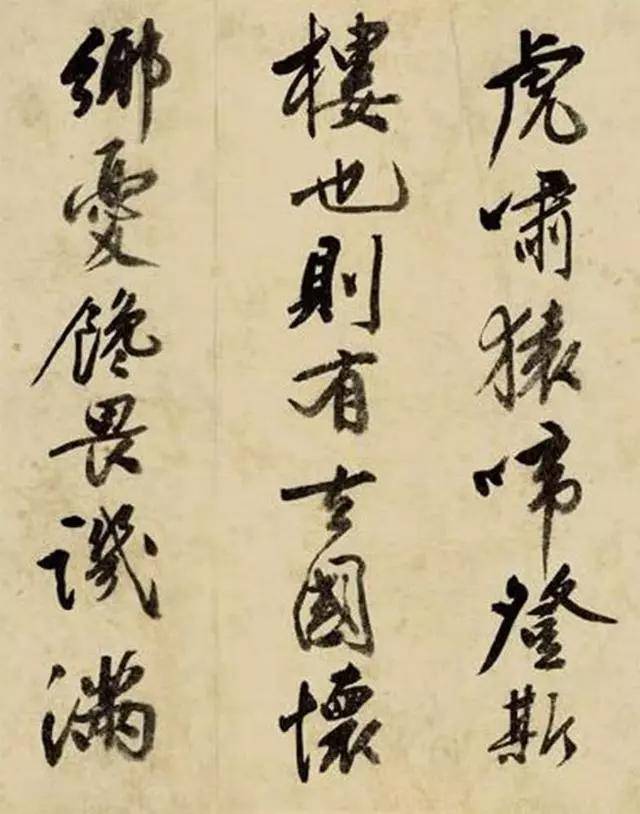 虎啸猿啼登斯
樓也則有去國懷
鄉憂饞畏譏滿